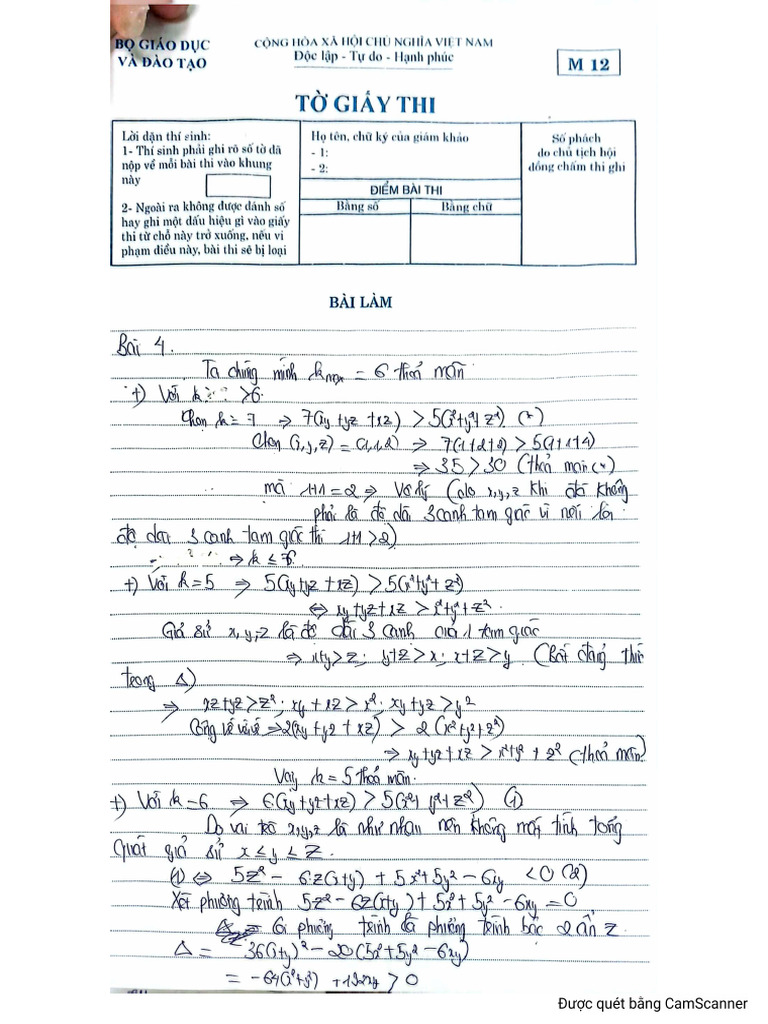 BỘ GIÁO DỤC
VÀ ĐÀO TẠO
CỘNG HÒA XÃ HỘI CHỦ NGHĨA VIỆT NAM
Độc lập - Tự do - Hạnh phúc
M 12
TỜ GIẤY THI
Lời dặn thí sinh:
1- Thí sinh phải ghi rõ số tờ đã
nộp về mỗi bài thi vào khung
này
2- Ngoài ra không được đánh số
hay ghi một dấu hiệu gì vào giấy
thi từ chỗ này trở xuống, nếu vi
phạm điều này, bài thi sẽ bị loại
Họ tên, chữ ký của giám khảo
- 1:
- 2:
ĐIỂM BÀI THI
Bằng số
Bằng chữ
Số phách
do chủ tịch hội
đồng chấm thi ghi
BÀI LÀM
Bài 4.
Ta chứng minh k max = 6 thoả mãn
+) Với k >6
Chọn k = 7 ⇒ 7(xy+yz+xz) > 5(x²+y²+z²) (*)
Chọn (x,y,z) = (1,1,2) ⇒ 7(1+2+2) > 5(1+1+4)
⇒ 35 > 30 (thoả mãn (*))
mà 1+1=2 ⇒ Vô lý (do x,y,z khi đó không
phải là độ dài 3 cạnh tam giác vì nếu là
độ dài 3 cạnh tam giác thì 1+1>2)
⇒ k ≤ 6
+) Với k=5 ⇒ 5(xy+yz+xz) > 5(x²+y²+z²)
⇔ xy+yz+xz > x²+y²+z²
Giả sử x,y,z là độ dài 3 cạnh của 1 tam giác
⇒ x+y>z; y+z>x; x+z>y (Bất đẳng thức
trong Δ)
⇒ xz+yz>z²; xy+xz>x²; xy+yz>y²
Cộng vế với vế ⇒ 2(xy+yz+xz) > 2(x²+y²+z²)
⇒ xy+yz+xz > x²+y²+z² (thoả mãn)
Vậy k=5 thoả mãn.
+) Với k=6 ⇒ 6(xy+yz+xz) > 5(x²+y²+z²) (1)
Do vai trò x,y,z là như nhau nên không mất tính tổng
quát giả sử x ≤ y ≤ z.
(1) ⇔ 5z² - 6z(x+y) + 5x²+5y²-6xy <0 (2)
Xét phương trình 5z²-6z(x+y)+5x²+5y²-6xy=0
phương trình là phương trình bậc 2 ẩn z
Δ = 36(x+y)²-20(5x²+5y²-6xy)
= -64(x²+y²) +192xy > 0
Được quét bằng CamScanner